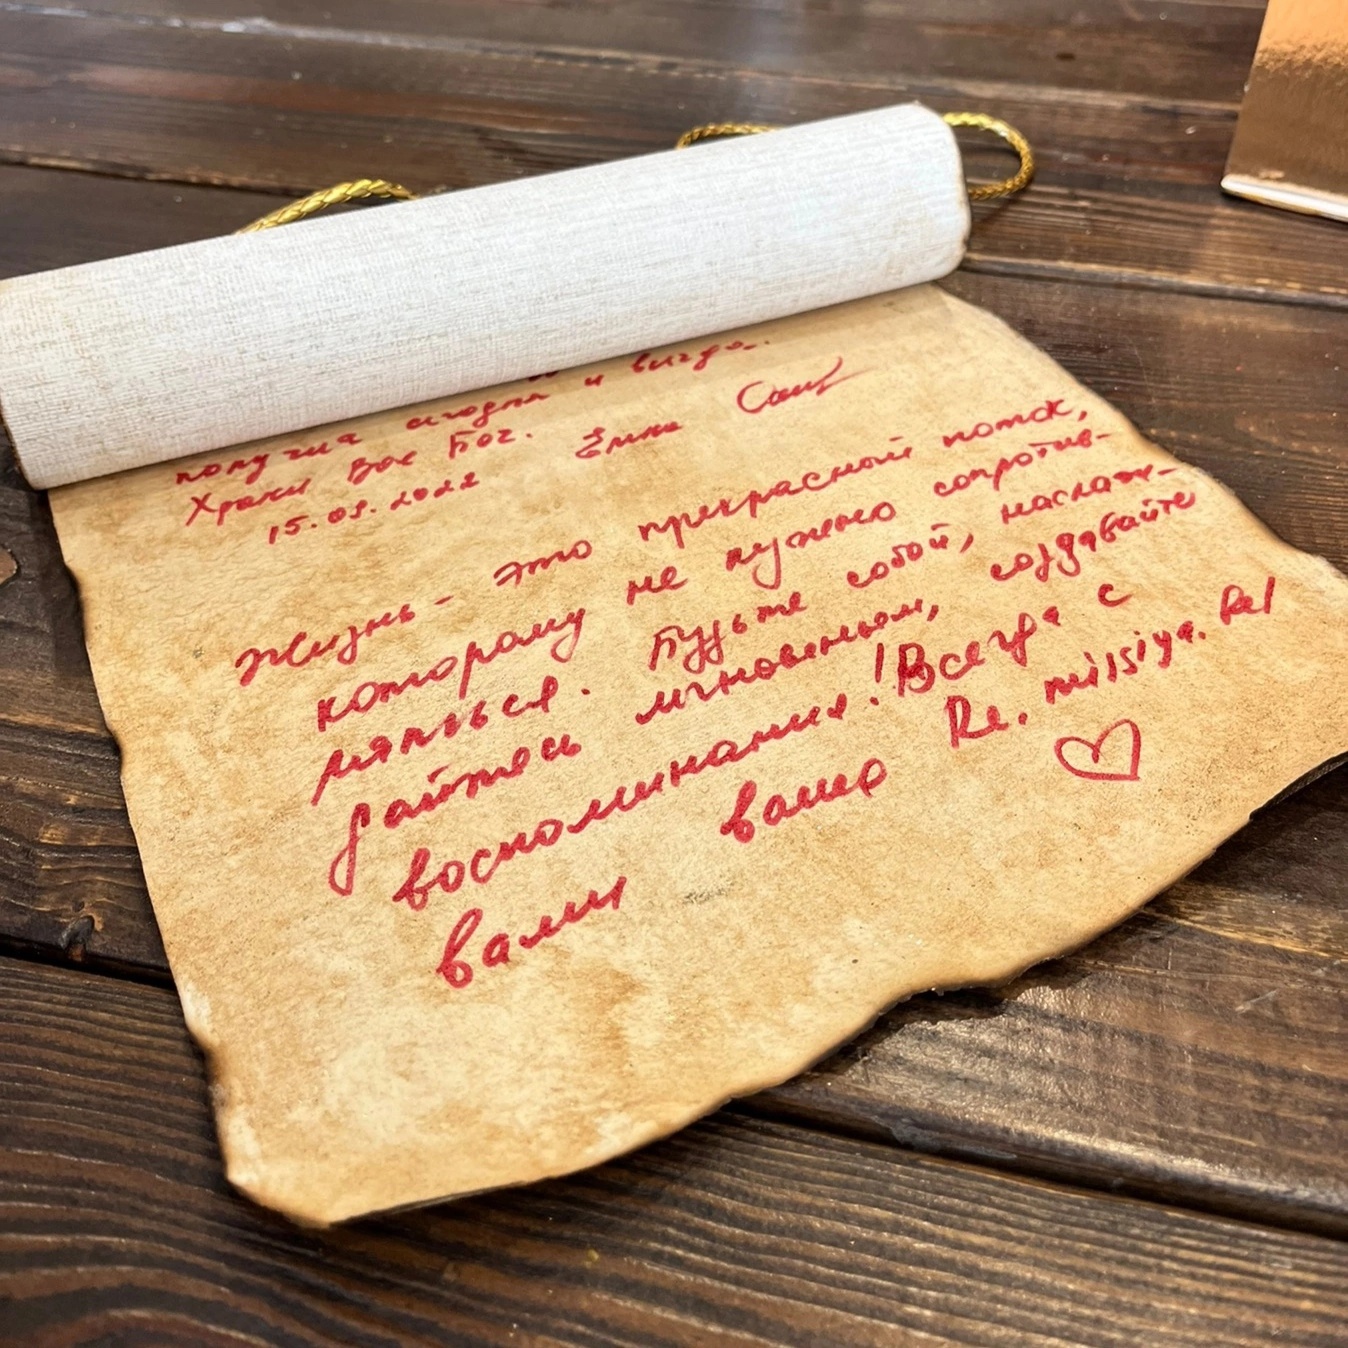 и
получил сегодня
Храни Вас Бог.
15.09.2022
Жизнь - это прекрасный поток,
которому не нужно сопротив-
ляться. Будьте собой, наслаж-
дайтесь мгновеньем, создавайте
воспоминания! Всегда с
вами ваша Re.missiya.Rel